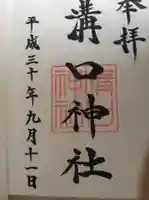 奉拝
溝口神社
平成三十年九月十一日